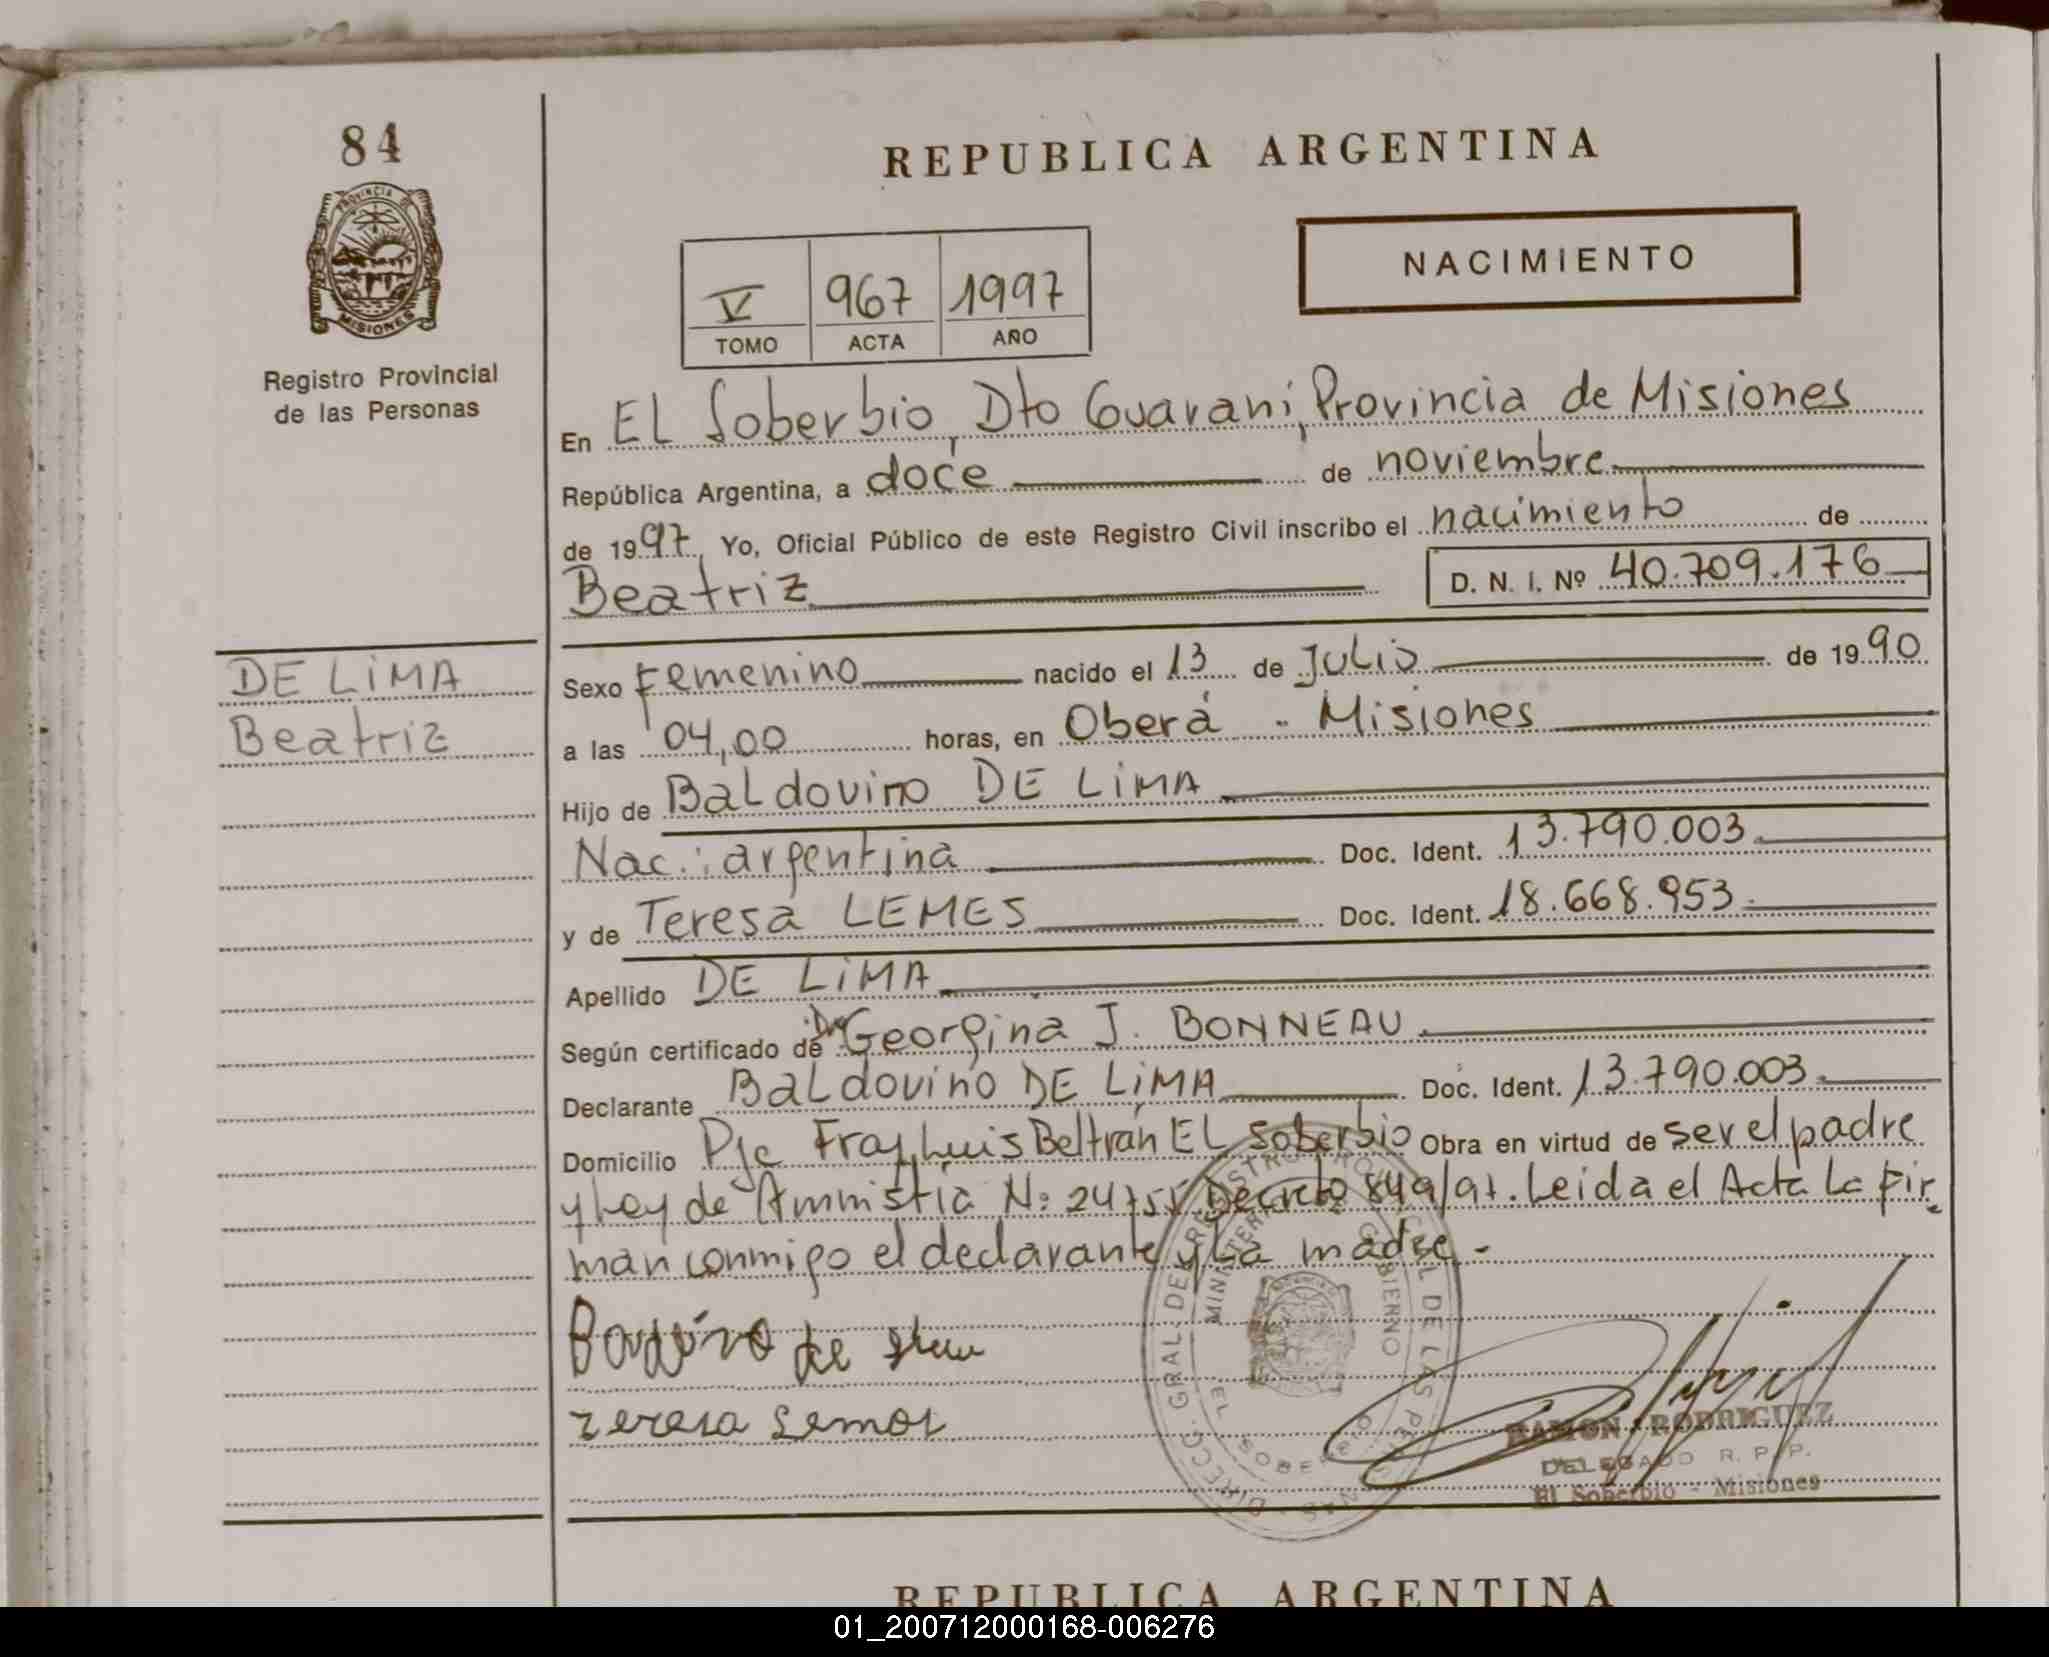 84
PROVINCIA DE
MISIONES
Registro Provincial
de las Personas
REPUBLICA ARGENTINA
NACIMIENTO
V 967 1997
TOMO ACTA AÑO
En EL Soberbio, Dto Guaraní, Provincia de Misiones
República Argentina, a doce de noviembre
de 1997, Yo, Oficial Público de este Registro Civil inscribo el nacimiento de
Beatriz D. N. I. Nº 40.709.176
DE LiMA
Beatriz
Sexo Femenino nacido el 13 de Julio de 1990
a las 04,00 horas, en Oberá - Misiones
Hijo de Baldovino DE LiMA
Nac.: argentina Doc. Ident. 13.790.003
y de Teresa LEMES Doc. Ident. 18.668.953
Apellido DE LiMA
Según certificado de Dra Georgina J. BONNEAU
Declarante Baldovino DE LiMA Doc. Ident. 13.790.003
Domicilio Pje Fray Luis Beltrán EL Soberbio Obra en virtud de ser el padre
y Ley de Amnistía N: 24755 Decreto 849/97. Leida el Acta La fir
man conmigo el declarante y La madre -
DIRECC. GRAL. DEL REGISTRO PROVINCIAL DE LAS PERSONAS
MINISTERIO DE GOBIERNO
EL SOBERBIO
RAMON RODRIGUEZ
DELEGADO R. P. P.
El Soberbio - Misiones
REPUBLICA ARGENTINA
01_200712000168-006276